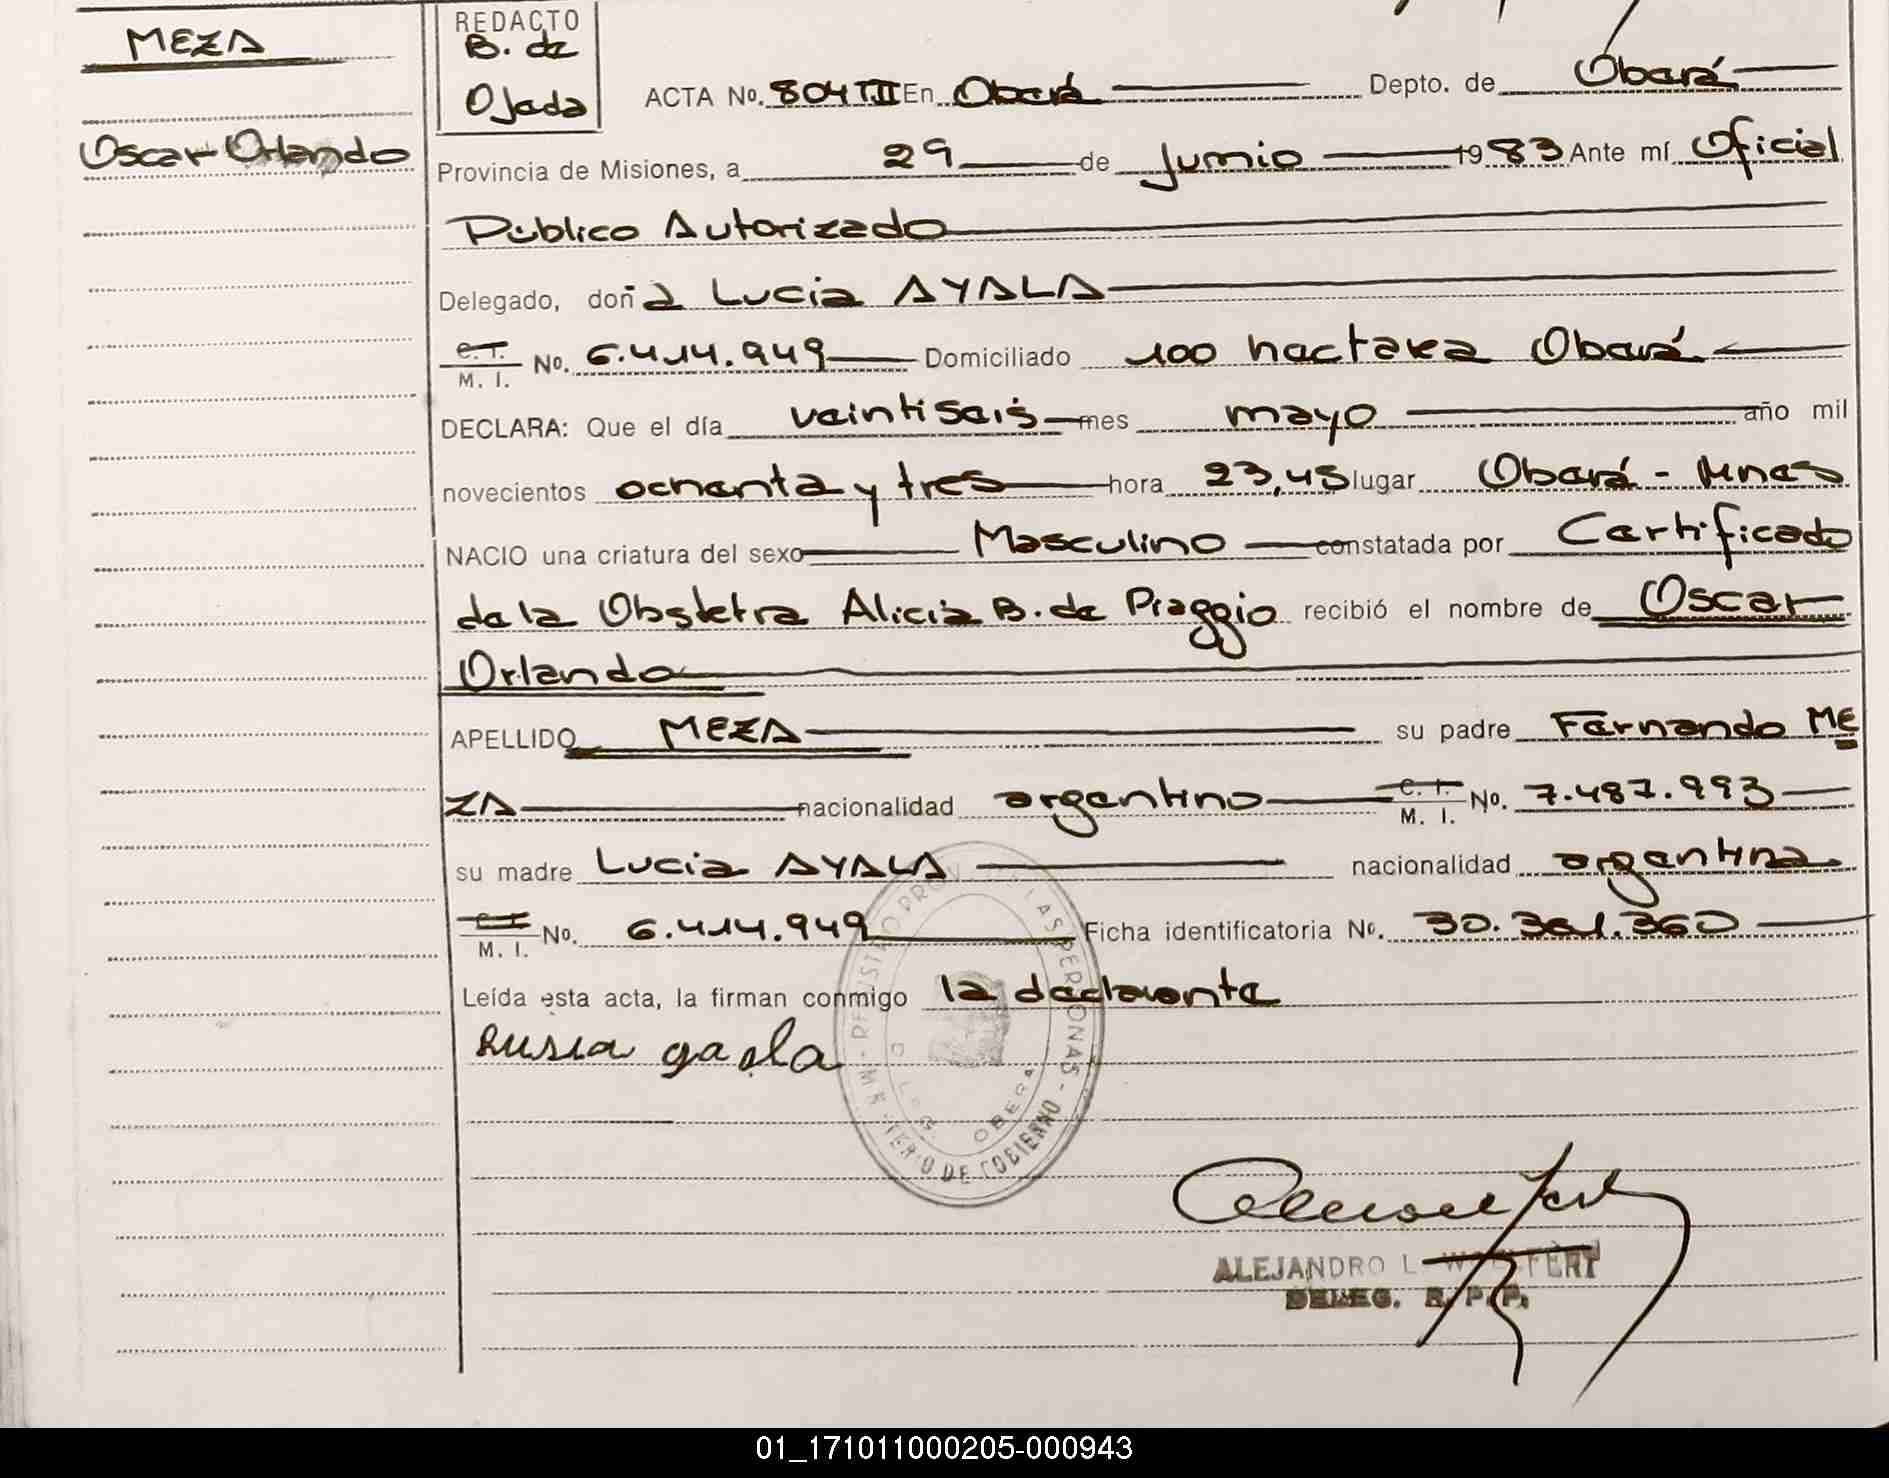 MEZA
Oscar Orlando
REDACTO
B. de
Ojeda
ACTA No. 804 TIII En Oberá Depto. de Oberá
Provincia de Misiones, a 29 de Junio 1983 Ante mí Oficial
Público Autorizado
Delegado, doña Lucia AYALA
C. I. M. I. No. 6.414.949 Domiciliado 100 hectarea Oberá
DECLARA: Que el día veintiseis mes mayo año mil
novecientos ochenta y tres hora 23,45 lugar Oberá - Mnes
NACIO una criatura del sexo Masculino constatada por Certificado
de la Obstetra Alicia B. de Piaggio recibió el nombre de Oscar
Orlando
APELLIDO MEZA su padre Fernando ME
ZA nacionalidad argentino C. I. M. I. No. 7.487.993
su madre Lucia AYALA nacionalidad argentina
M. I. No. 6.414.949 Ficha identificatoria No. 30.361.360
Leída esta acta, la firman conmigo la declarante
REGISTRO PROV. DE LAS PERSONAS - MINISTERIO DE GOBIERNO
OBERA
ALEJANDRO L.
DELEG. R. P. P.
01_171011000205-000943